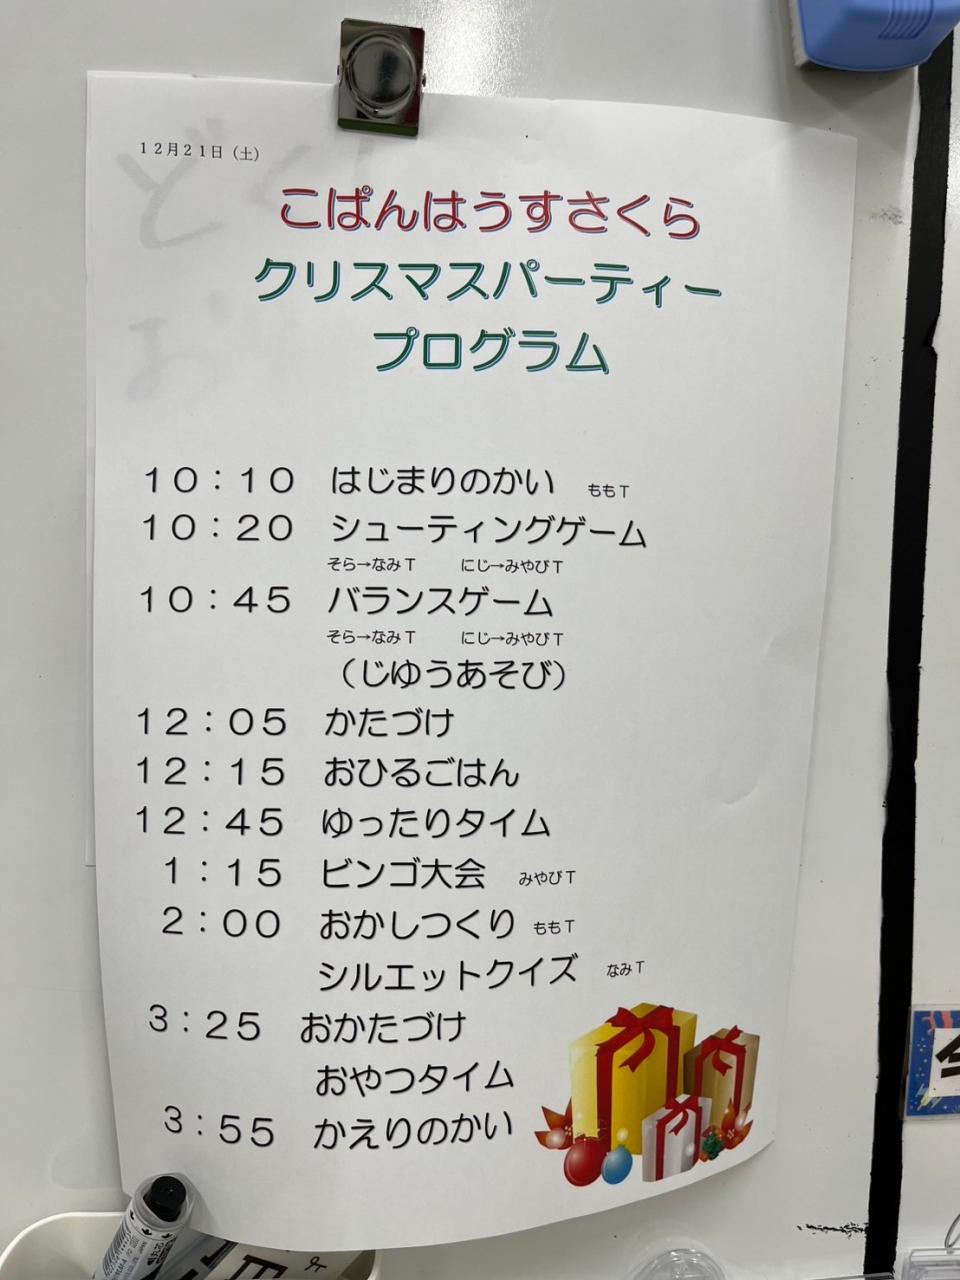 １２月２１日（土）
こぱんはうすさくら
クリスマスパーティー
プログラム
１０：１０　はじまりのかい　ももＴ
１０：２０　シューティングゲーム
そら→なみＴ　にじ→みやびＴ
１０：４５　バランスゲーム
そら→なみＴ　にじ→みやびＴ
（じゆうあそび）
１２：０５　かたづけ
１２：１５　おひるごはん
１２：４５　ゆったりタイム
１：１５　ビンゴ大会　みやびＴ
２：００　おかしつくり　ももＴ
シルエットクイズ　なみＴ
３：２５　おかたづけ
おやつタイム
３：５５　かえりのかい